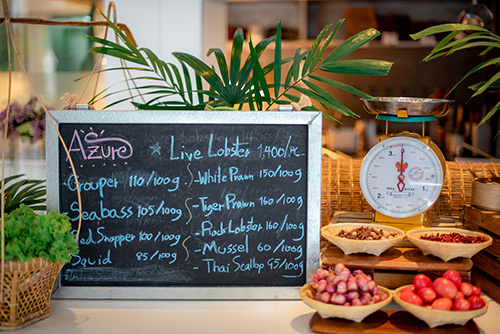 Azure
Grouper 110/100g
Seabass 105/100g
Red Snapper 100/100g
Squid 85/100g
★ Live Lobster 1,400/K.
- White Prawn 150/100g
- Tiger Prawn 160/100g
- Rock Lobster 160/100g
- Mussel 60/100g
- Thai Scallop 95/100g
1
2
3